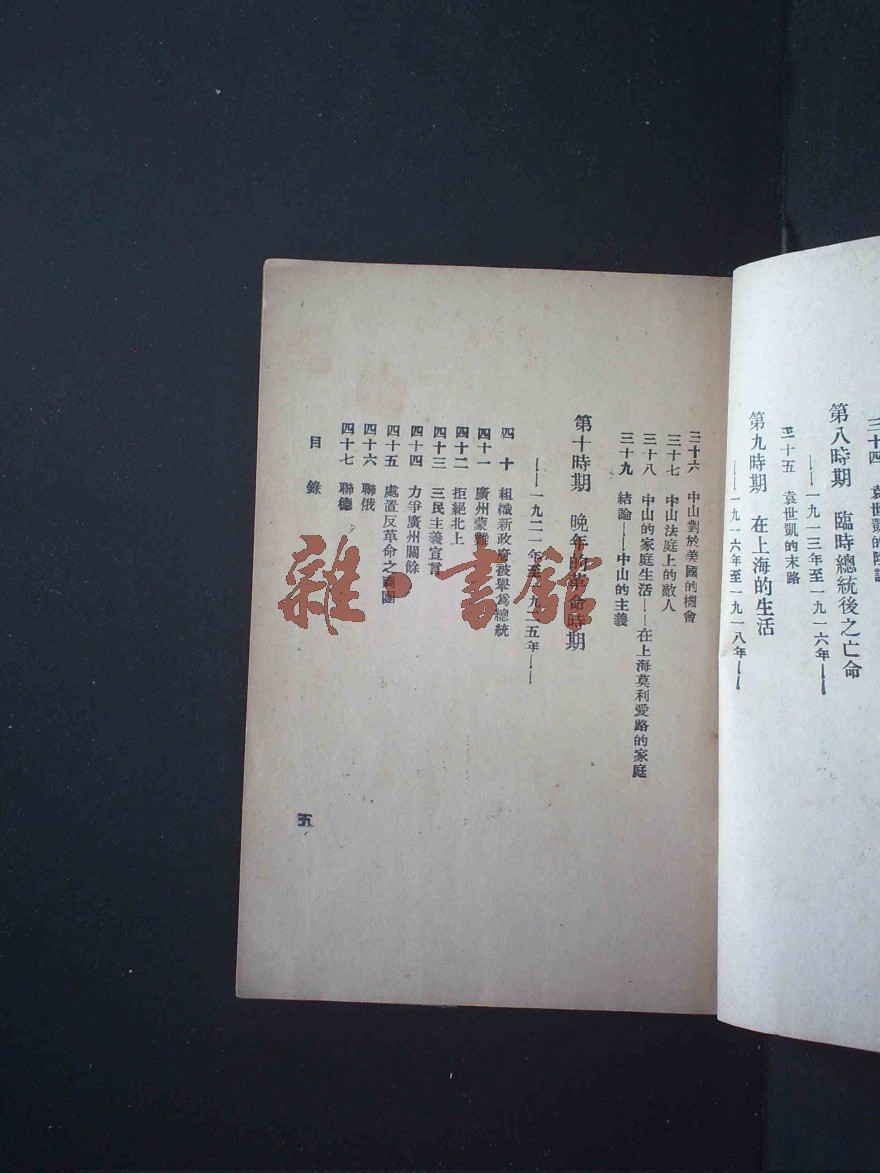 三十四　袁世凱的陰謀
第八時期　臨時總統後之亡命
——一九一三年至一九一六年——
三十五　袁世凱的末路
第九時期　在上海的生活
——一九一六年至一九一八年——
三十六　中山對於美國的機會
三十七　中山法庭上的敵人
三十八　中山的家庭生活——在上海莫利愛路的家庭
三十九　結論——中山的主義
第十時期　晚年的革命時期
——一九二一年至一九二五年——
四　十　組織新政府被舉爲總統
四十一　廣州蒙難
四十二　拒絕北上
四十三　三民主義宣言
四十四　力爭廣州關餘
四十五　處置反革命之商團
四十六　聯俄
四十七　聯德
目　錄
五
雜·書館